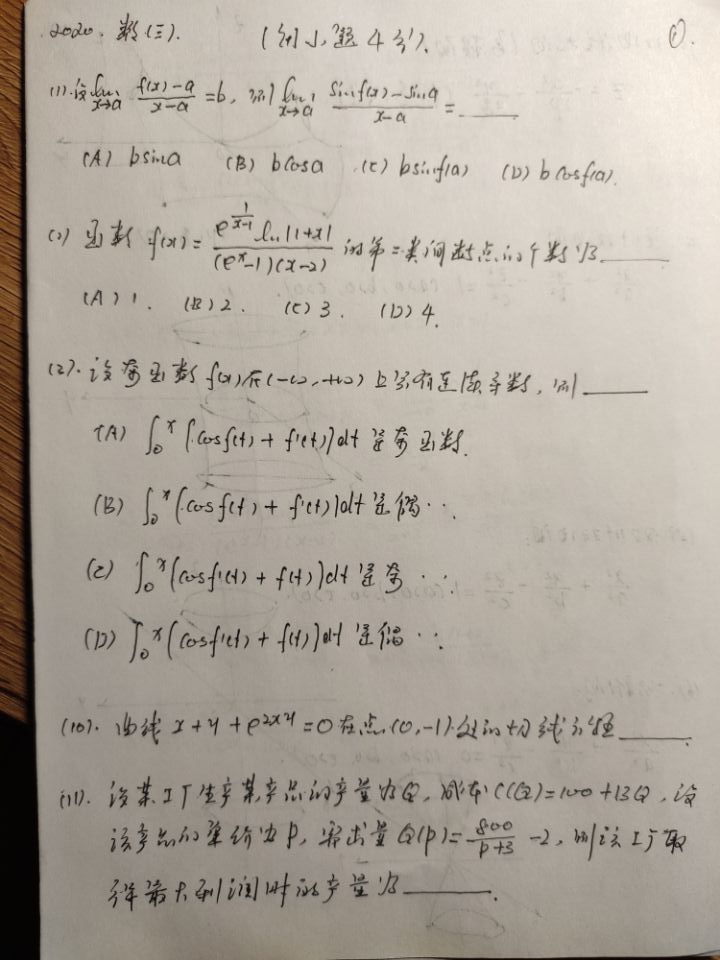 2020. 数(三). (每小题4分). ①.
(1). 设 lim x→a (f(x)-a)/(x-a) = b, 则 lim x→a (sin f(x) - sin a)/(x-a) = ____
(A) b sin a (B) b cos a (C) b sin f(a) (D) b cos f(a).
(2) 函数 f(x) = (e^(1/(x-1)) ln|1+x|)/((e^x-1)(x-2)) 的第二类间断点的个数为____.
(A) 1. (B) 2. (C) 3. (D) 4.
(3). 设奇函数 f(x) 在 (-∞, +∞) 上具有连续导数, 则____
(A) ∫₀ˣ [cos f(t) + f'(t)]dt 是奇函数.
(B) ∫₀ˣ [cos f(t) + f'(t)]dt 是偶‥.
(C) ∫₀ˣ [cos f'(t) + f(t)]dt 是奇‥.
(D) ∫₀ˣ [cos f'(t) + f(t)]dt 是偶‥.
(10). 曲线 x+y+e^(2xy) = 0 在点 (0, -1) 处的切线方程____.
(11). 设某工厂生产某产品的产量为Q, 成本 C(Q) = 100 + 13Q, 设
该产品的单价为P, 需求量 Q(P) = 800/(P+3) - 2, 则该工厂取
得最大利润时的产量为____.